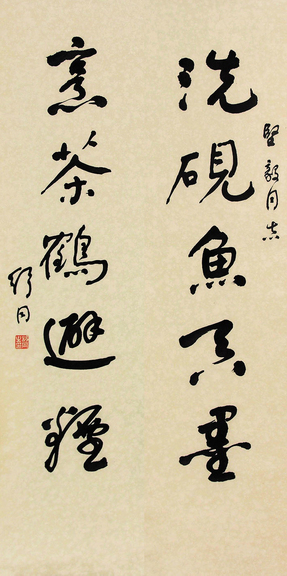 洗硯魚吞墨
堅毅同志
烹茶鶴避煙
舒同